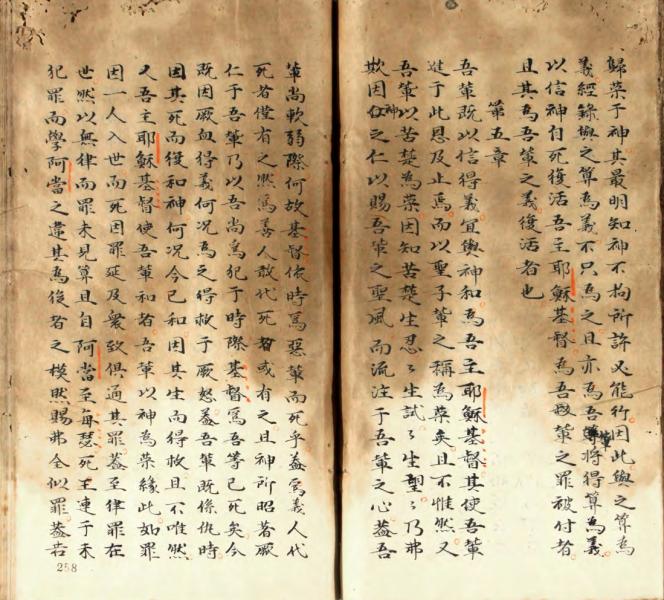 歸榮于神其最明知神不拘所許又能行因此與之算為
義經錄與之算為義不只為之且亦為吾輩將得算為義
以信神自死復活吾主耶穌基督為吾輩之罪被付者
且其為吾輩之義復活者也
第五章
吾輩既以信得義宜與神和為吾主耶穌基督其使吾輩
進于此恩及止焉而以聖子輩之稱為榮矣且不惟然又
吾輩以苦楚為榮因知苦楚生忍忍生試試生望望乃弗
欺因神之仁以賜吾輩之聖風而流注于吾輩之心蓋吾
輩尚軟弱際何故基督依時為惡輩而死乎蓋為義人代
死者僅有之然為善人敢代死者或有之且神所昭著厥
仁于吾輩乃以吾尚為犯于時際基督為吾等已死矣今
既因厥血得義何況為之得救于厥怒蓋吾輩既係仇時
因其死而復和神何況今已和因其生而得救且不唯然
又吾主耶穌基督使吾輩和者吾輩以神為榮緣此如罪
因一人入世而死因罪延及眾致俱通其罪蓋至律罪在
世然以無律而罪未見算且自阿當至每瑟死王連于未
犯罪而學阿當之違其為後者之模然賜弗全似罪蓋若
258